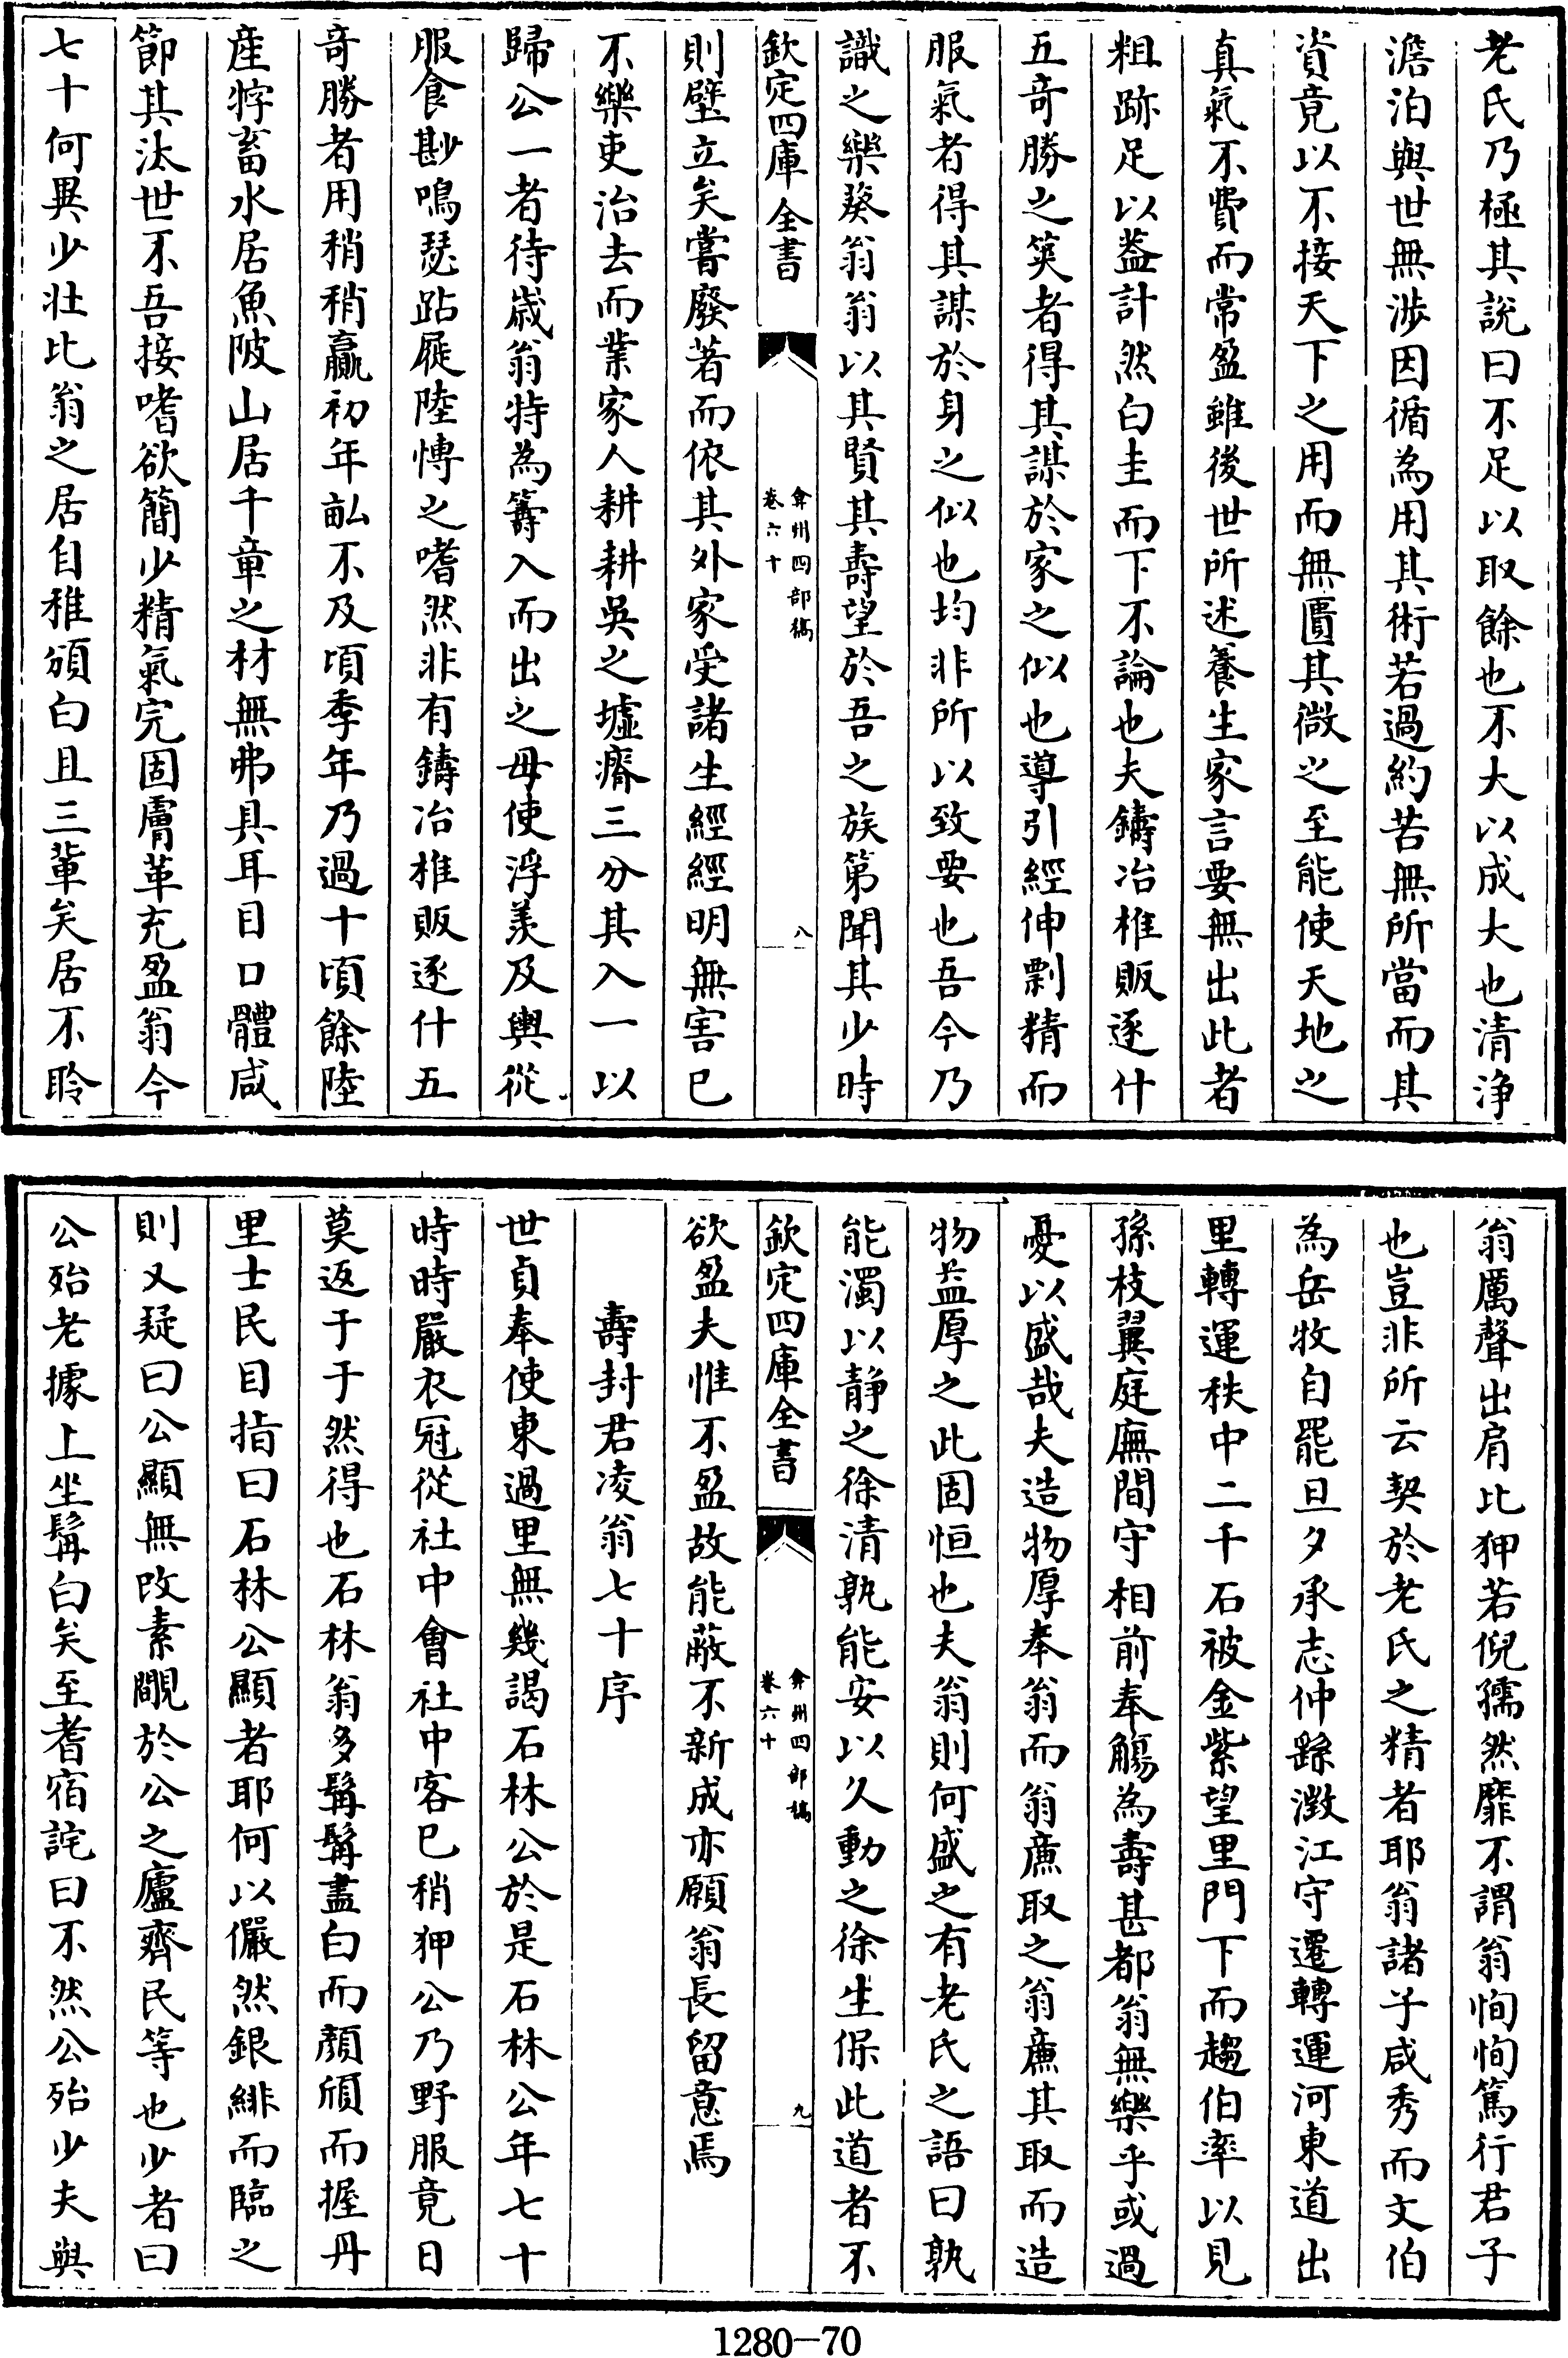 老氏乃極其説曰不足以取餘也不大以成大也清浄
澹泊與世無涉因循為用其術若過約苦無所當而其
資竟以不接天下之用而無匱其微之至能使天地之
真氣不費而常盈雖後世所述養生家言要無出此者
粗跡足以葢計然白圭而下不論也夫鑄冶椎販逐什
五竒勝之筴者得其謀於家之似也導引經伸剽精而
服氣者得其謀於身之似也均非所以致要也吾今乃
識之樂葵翁翁以其賢其壽望於吾之族第聞其少時
欽定四庫全書
弇州四部稿
卷六十
八
則壁立矣嘗廢著而依其外家受諸生經經明無害已
不樂吏治去而業家人耕耕吳之墟瘠三分其入一以
歸公一者待歲翁特為籌入而出之毋使浮羨及輿從
服食尠鳴瑟跕屣陸慱之嗜然非有鑄冶椎販逐什五
竒勝者用稍稍贏初年畆不及頃季年乃過十頃餘陸
産牸畜水居魚陂山居千章之材無弗具耳目口體咸
節其汰世不吾接嗜欲簡少精氣完固膚革充盈翁今
七十何異少壯比翁之居自稚頒白且三輩矣居不聆
翁厲聲出肩比狎若倪孺然靡不謂翁恂恂篤行君子
也豈非所云契於老氏之精者耶翁諸子咸秀而文伯
為岳牧自罷旦夕承志仲繇澂江守遷轉運河東道出
里轉運秩中二千石被金紫望里門下而趨伯率以見
孫枝翼庭廡間守相前奉觴為壽甚都翁無樂乎或過
憂以盛哉夫造物厚奉翁而翁廉取之翁廉其取而造
物益厚之此固恒也夫翁則何盛之有老氏之語曰孰
能濁以静之徐清孰能安以久動之徐生保此道者不
欽定四庫全書
弇州四部稿
卷六十
九
欲盈夫惟不盈故能蔽不新成亦願翁長留意焉
壽封君凌翁七十序
世貞奉使東過里無幾謁石林公於是石林公年七十
時時嚴衣冠從社中會社中客已稍狎公乃野服竟日
莫返于于然得也石林翁多髯髯盡白而顔頎而握丹
里士民目指曰石林公顯者耶何以儼然銀緋而臨之
則又疑曰公顯無改素覵於公之廬齊民等也少者曰
公殆老據上坐髯白矣至耆宿詫曰不然公殆少夫與
1280-70